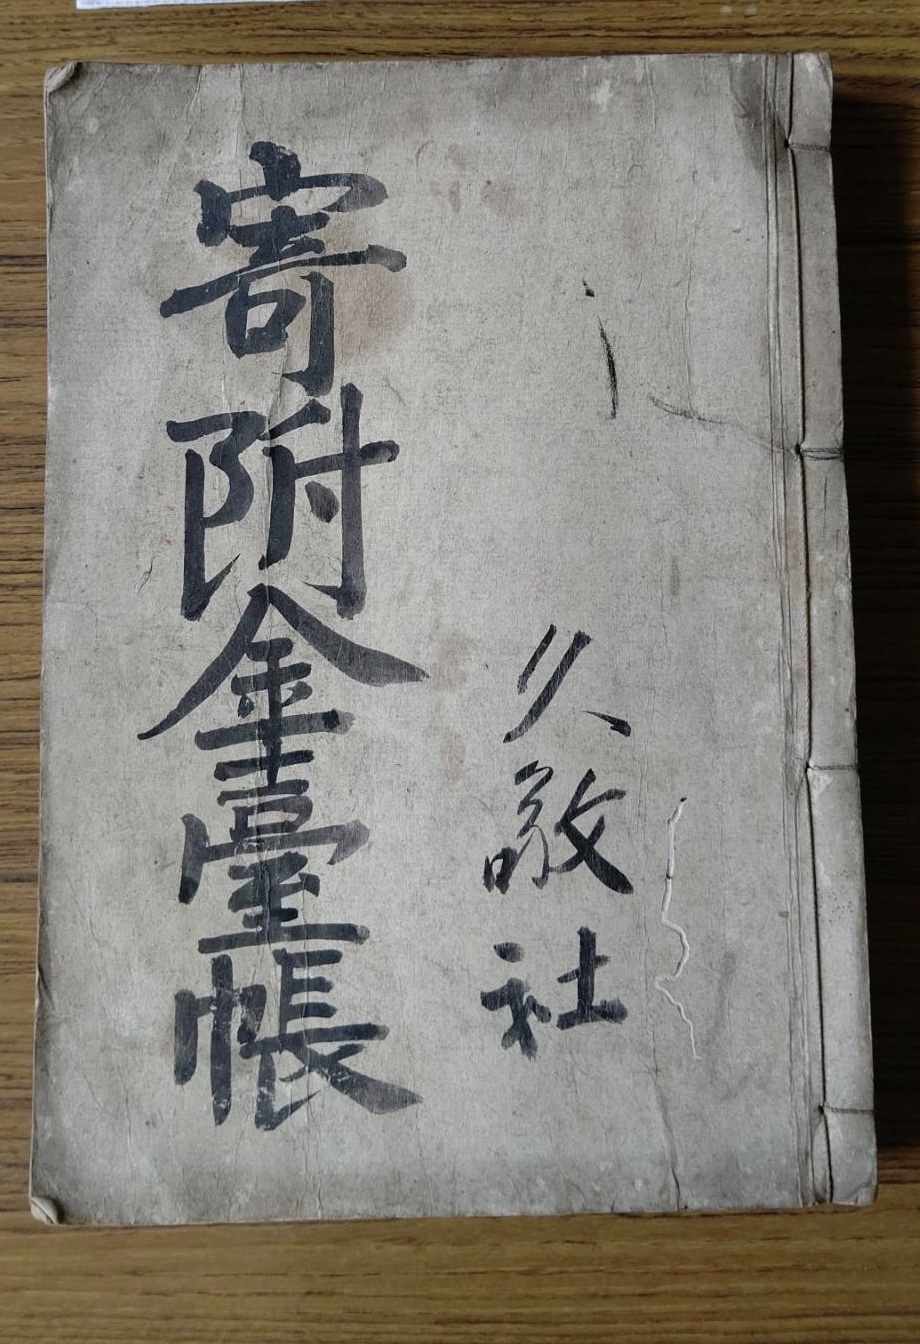 久敬社
寄附金臺帳